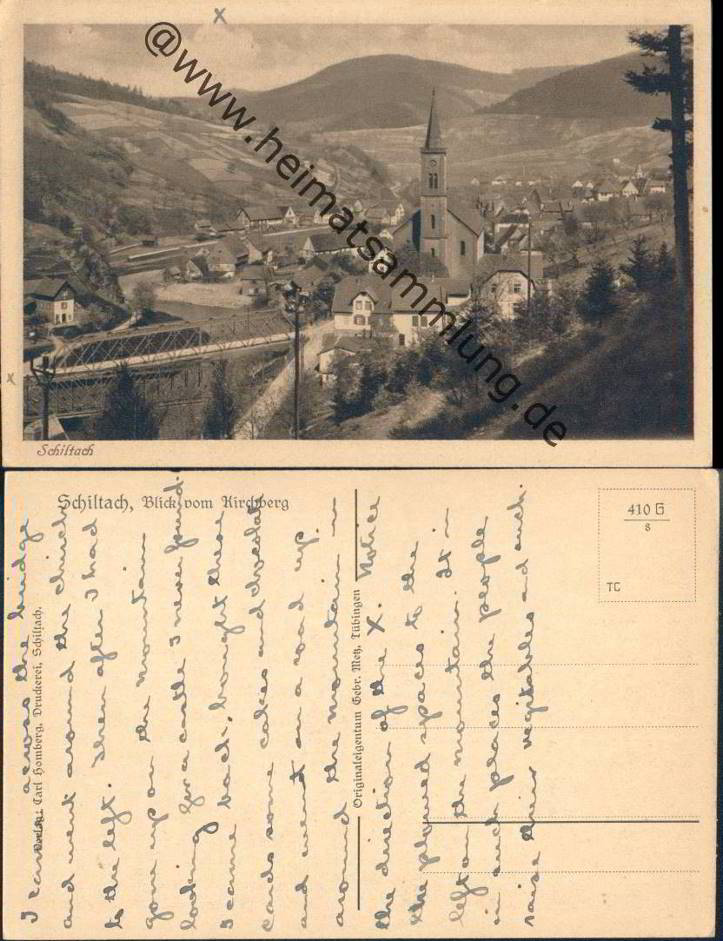 @www.heimatsammlung.de
Schiltach
Schiltach, Blick vom Kirchberg
410 G
8
TC
Verlag: Carl Homberg, Druckerei, Schiltach.
Originaleigentum Gebr. Metz, Tübingen
I came across the bridge
and went around the church
to the left. Then after I had
gone up on the mountain
looking for a castle I never found.
I came back, bought these
cards some cakes and chocolate
and went on a road up
around the mountain in
the direction of the X. Notice
the plowed spaces to the
left on the mountain. It is
in such places the people
raise their vegitables and such.